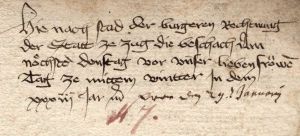 Hie nach stad der burgeren Rechnung
der Statt ze Zug die beschach Am
nöchste donstag vor unser lieben fröwe
Tag ze mittem wintter In dem
xxxiii Jar
den 29. Januarii